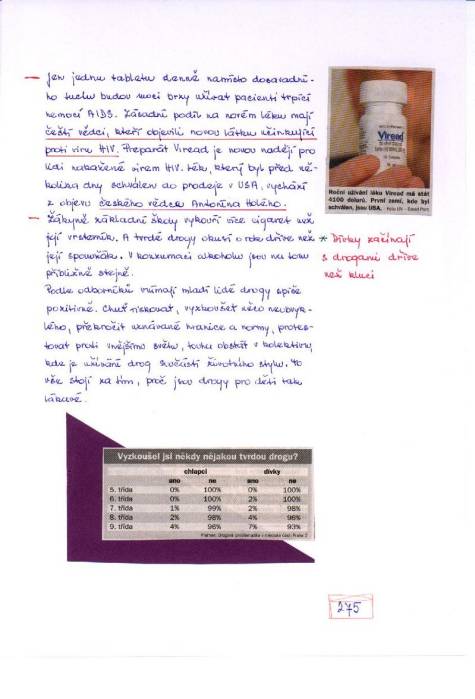 Jen jednu tabletu denně namísto dosavadní-
ho tuctu budou moci brzy užívat pacienti trpící
nemocí AIDS. Zásadní podíl na novém léku mají
čeští vědci, kteří objevili novou látku účinkující
proti viru HIV. Preparát Viread je novou nadějí pro
lidi nakažené virem HIV. Lék, který byl před ně-
kolika dny schválen do prodeje v USA, vychází
z objevu českého vědce Antonína Holého.
Žákyně základní školy vykouří více cigaret než
její vrstevník. A tvrdé drogy okusí o rok dříve než
její spolužák. V konzumaci alkoholu jsou na tom
přibližně stejně.
Podle odborníků vnímají mladí lidé drogy spíše
pozitivně. Chuť riskovat, vyzkoušet něco neobvyk-
lého, překročit uznávané hranice a normy, protes-
tovat proti vnějšímu světu, touha obstát v kolektivu,
kde je užívání drog součástí životního stylu. To
vše stojí za tím, proč jsou drogy pro děti tak
lákavé.
Viread
Roční užívání léku Viread má stát
4100 dolarů. První zemí, kde byl
schválen, jsou USA.
* Dívky začínají
s drogami dříve
než kluci
Vyzkoušel jsi někdy nějakou tvrdou drogu?
chlapci dívky
ano ne ano ne
5. třída 0% 100% 0% 100%
6. třída 0% 100% 2% 100%
7. třída 1% 99% 2% 98%
8. třída 2% 98% 4% 96%
9. třída 4% 96% 7% 93%
275